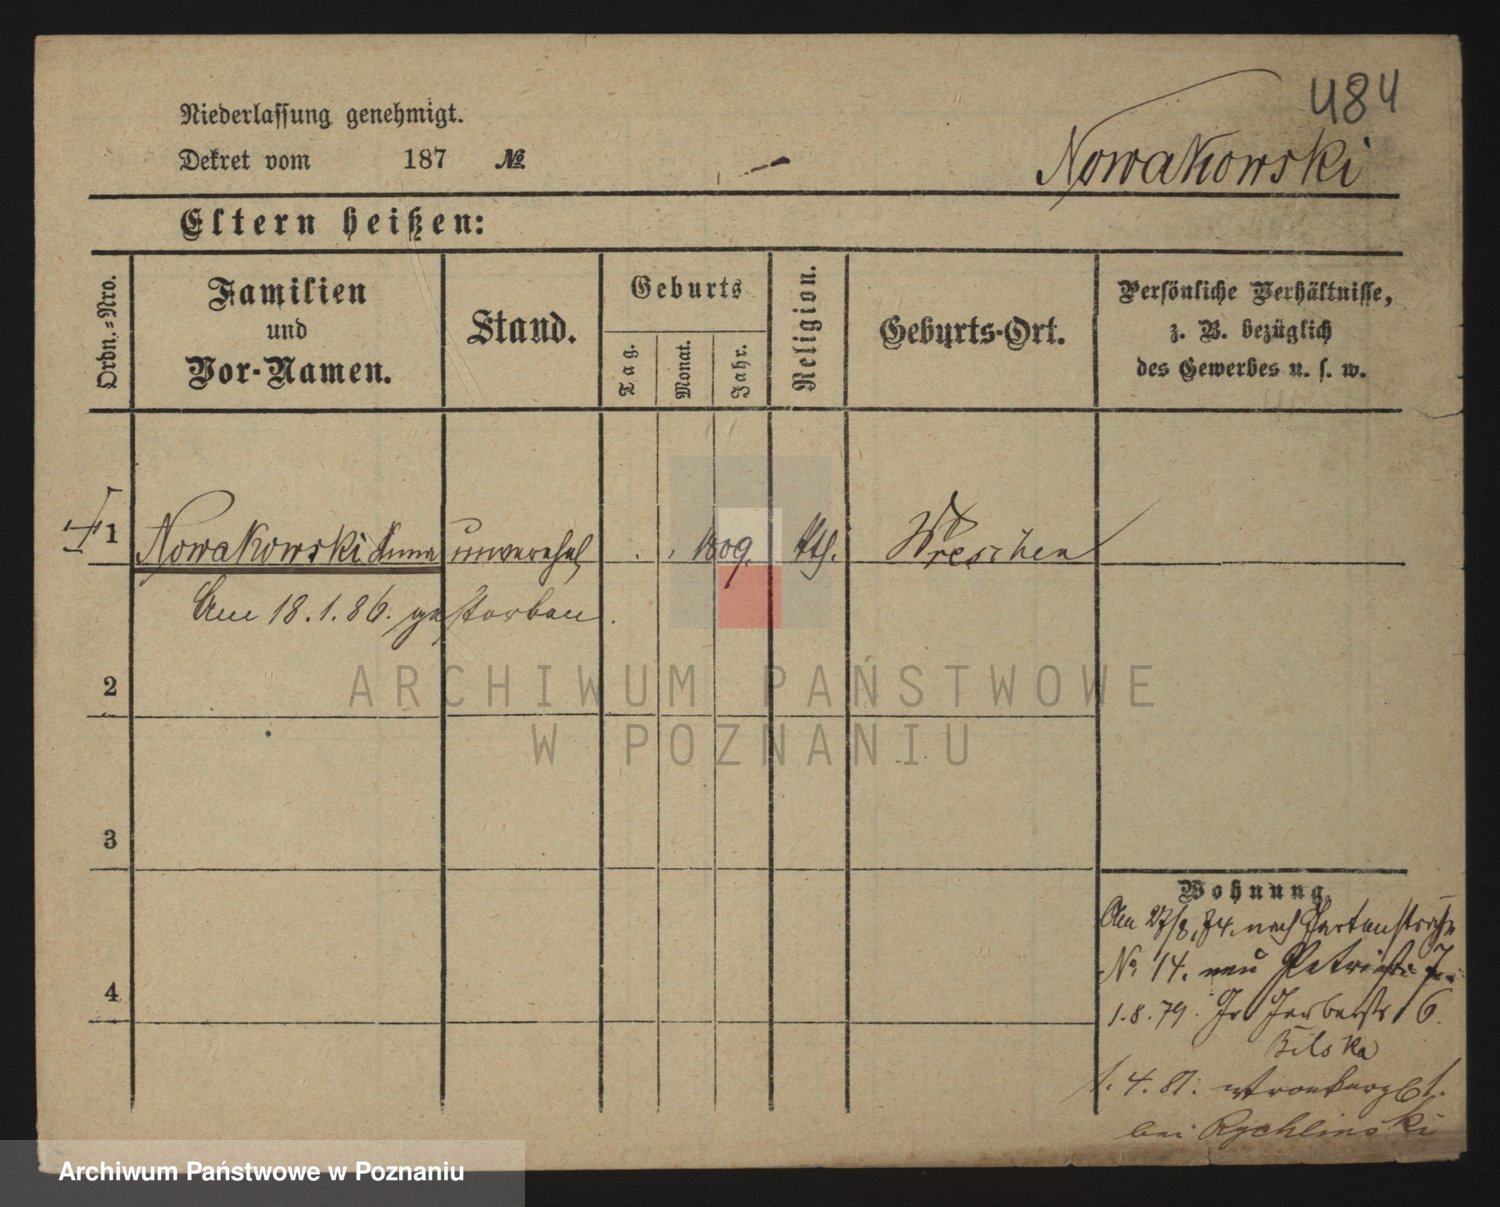 484
Niederlassung genehmigt.
Dekret vom 187 №
Nowakowski
Eltern heißen:
Ordn.=Nro.
Familien
und
Vor-Namen.
Stand.
Geburts
Tag.
Monat.
Jahr.
Religion.
Geburts-Ort.
Persönliche Verhältnisse,
z. B. bezüglich
des Gewerbes u. s. w.
1 Nowakowski Anna unverehel 1809. kth. Wreschen
Am 18.1.86. gestorben.
2
ARCHIWUM PAŃSTWOWE
W POZNANIU
3
Wohnung.
Am 27/8.74. nach Gartenstraße
No 14. neu Petristr 7.
4
1.8.79. Gr Gerberstr 6.
Bilska
1.4.81.
bei Rychlinski
Archiwum Państwowe w Poznaniu